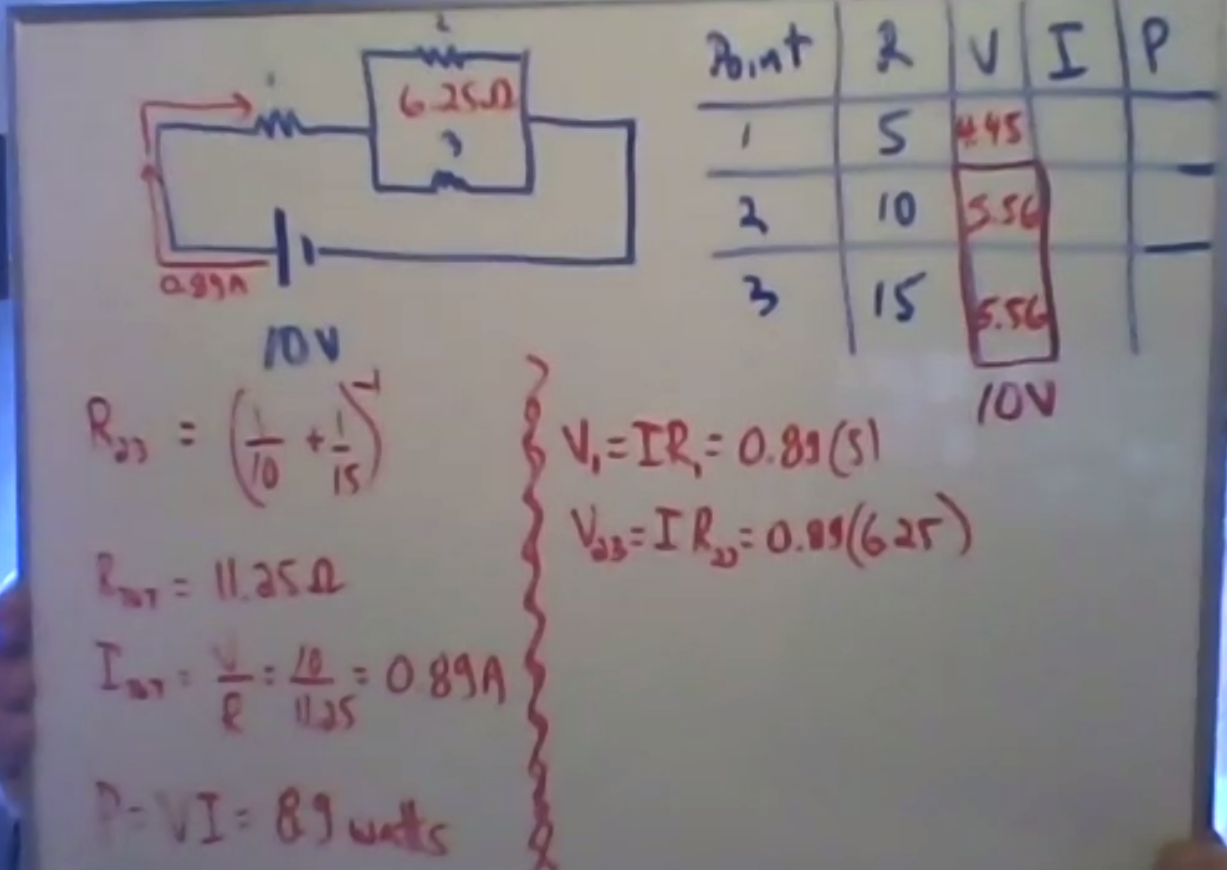 1
2
6.25Ω
3
0.89A
10V
Point R V I P
1 5 4.45
2 10 5.56
3 15 5.56
10V
R₂₃ = (1/10 + 1/15)⁻¹
R_TOT = 11.25Ω
I_TOT = V/R = 10/11.25 = 0.89A
P = VI = 8.9 watts
V₁ = IR₁ = 0.89(5)
V₂₃ = I R₂₃ = 0.89(6.25)